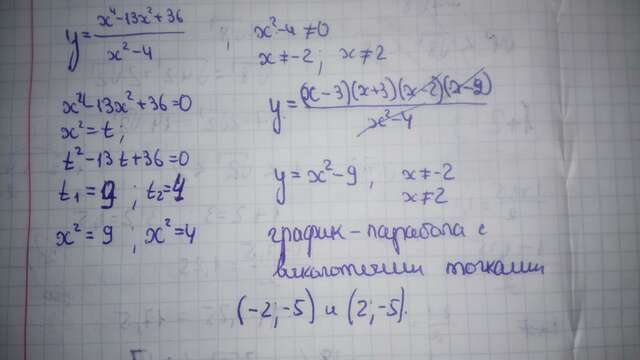 y = (x⁴-13x²+36)/(x²-4) , x²-4≠0
x≠-2; x≠2
x⁴-13x²+36=0
x²=t;
t²-13t+36=0
t₁=9; t₂=4
x²=9, x²=4
y = (x-3)(x+3)(x-2)(x-2)/(x²-4)
y=x²-9, x≠-2
x≠2
график - парабола с
выколотыми точками
(-2;-5) и (2;-5).